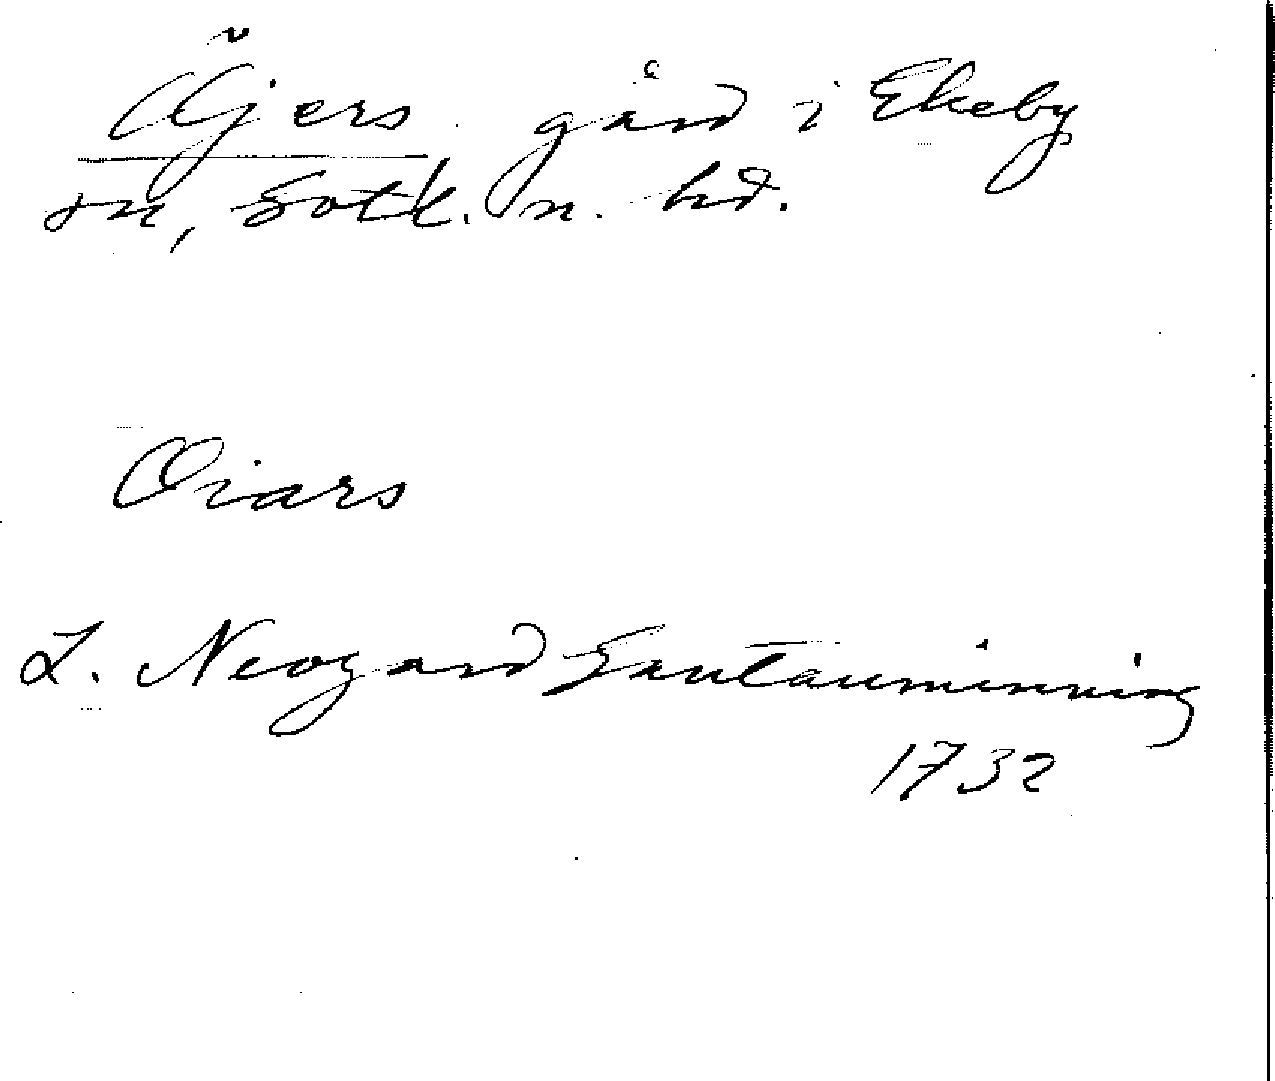 Öjers gård i Ekeby
sn, Gotl. n. hd.
Oiars
L. Neogard Gautauminning
1732